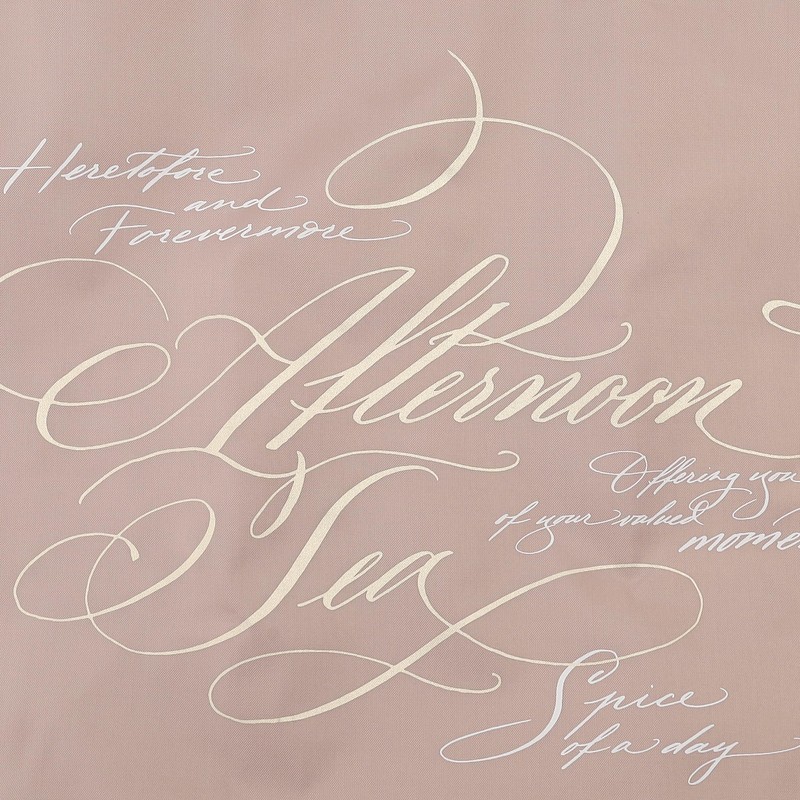 Heretofore
and
Forevermore
Afternoon
Tea
Offering you
of your valued
Spice
of a day